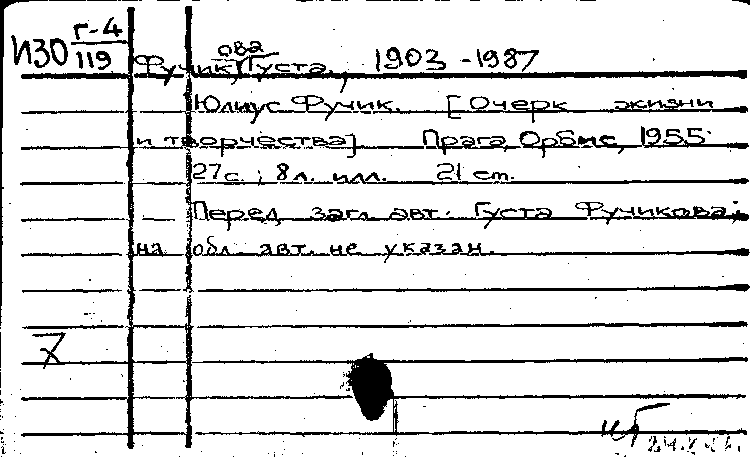 ИЗО Г-4
119
Фучик(ова), Густа., 1903-1987
Юлиус Фучик. [Очерк жизни
и творчества]. Прага, Орбис, 1955.
27с.; 8л. илл. 21 cm.
Перед загл. авт. Густа Фучикова;
на обл. авт. не указан.
7